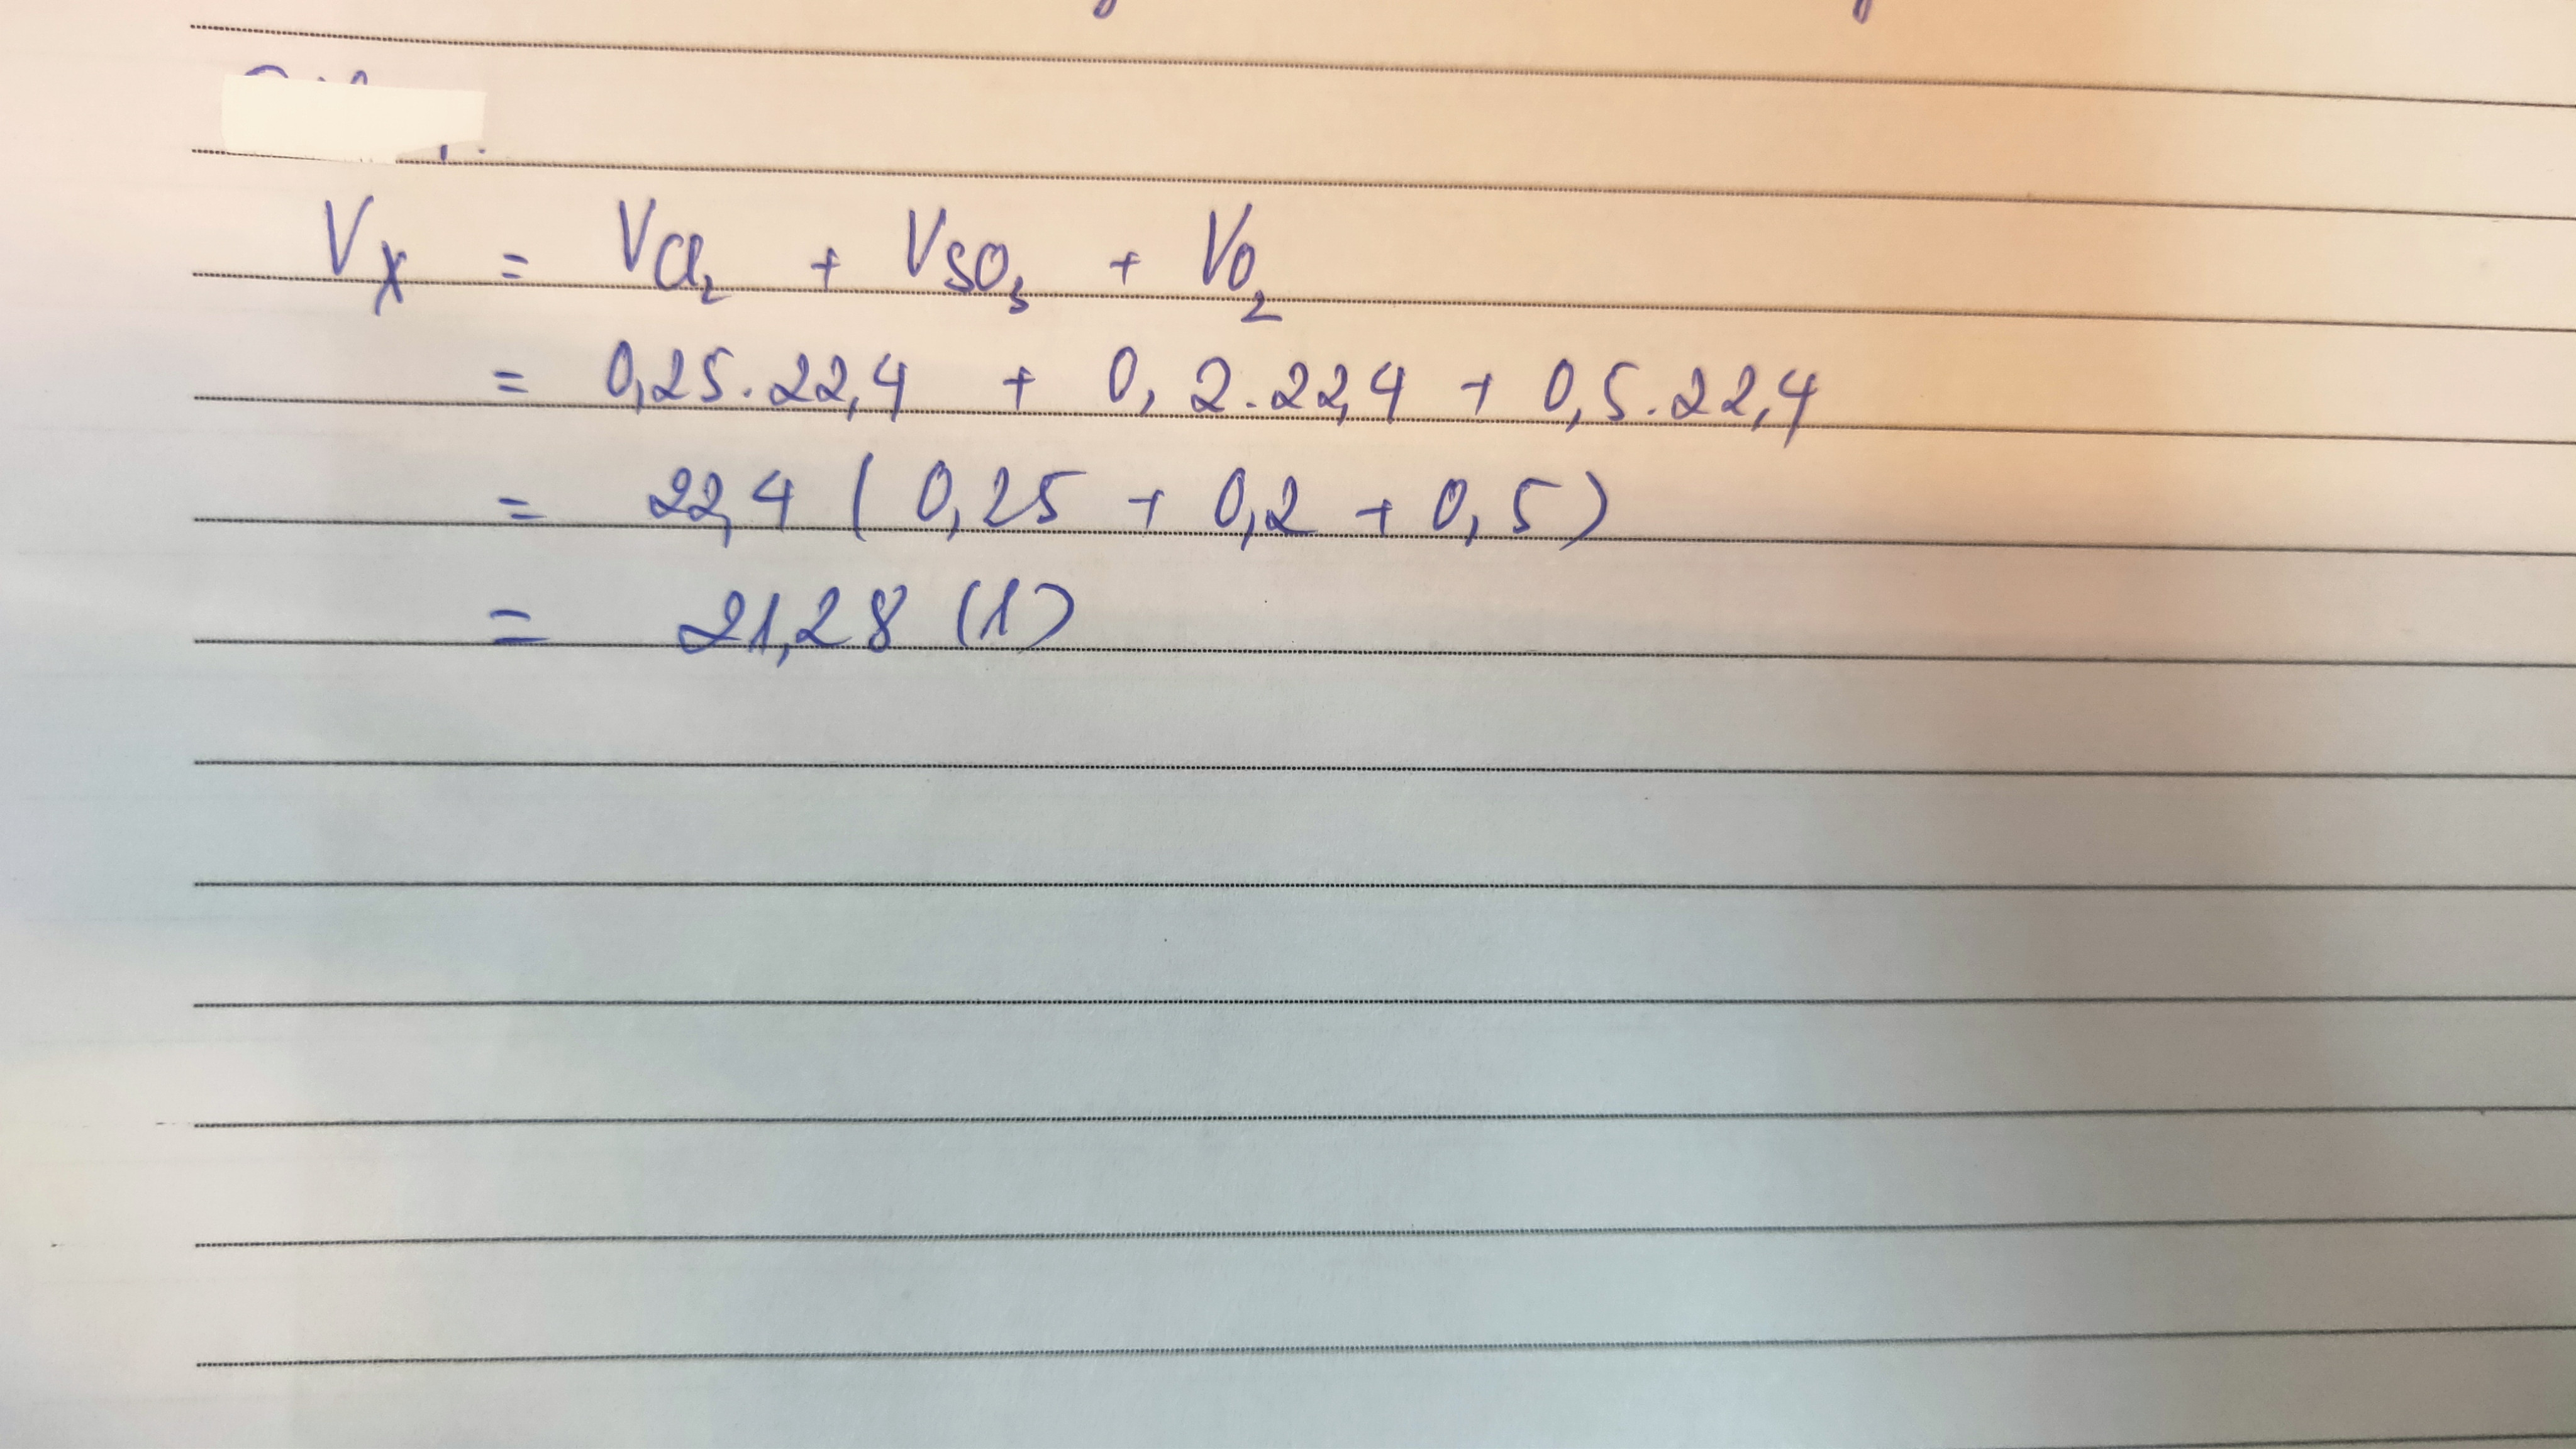 Vₓ = V_Cl₂ + V_SO₃ + V_O₂
= 0,25.22,4 + 0,2.22,4 + 0,5.22,4
= 22,4 ( 0,25 + 0,2 + 0,5)
= 21,28 (l)